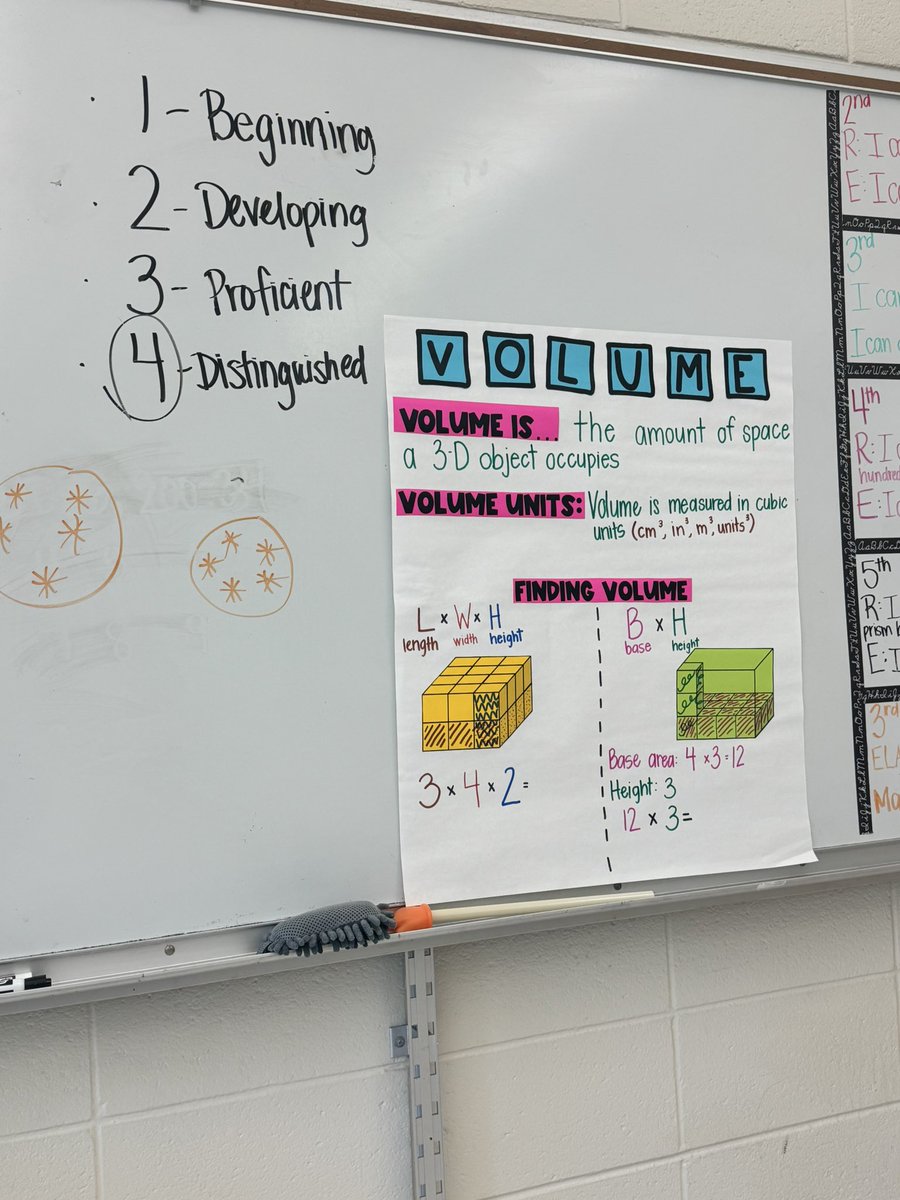 1 - Beginning
2 - Developing
3 - Proficient
4 - Distinguished
VOLUME
VOLUME IS... the amount of space
a 3-D object occupies
VOLUME UNITS: Volume is measured in cubic
units (cm³, in³, m³, units³)
FINDING VOLUME
L × W × H
length width height
3 × 4 × 2 =
B × H
base height
Base area: 4 × 3 = 12
Height: 3
12 × 3 =
2nd
R: I
E: I
3rd
I can
I can
4th
R: I
E: I
5th
R: I
prism
E: I
3rd